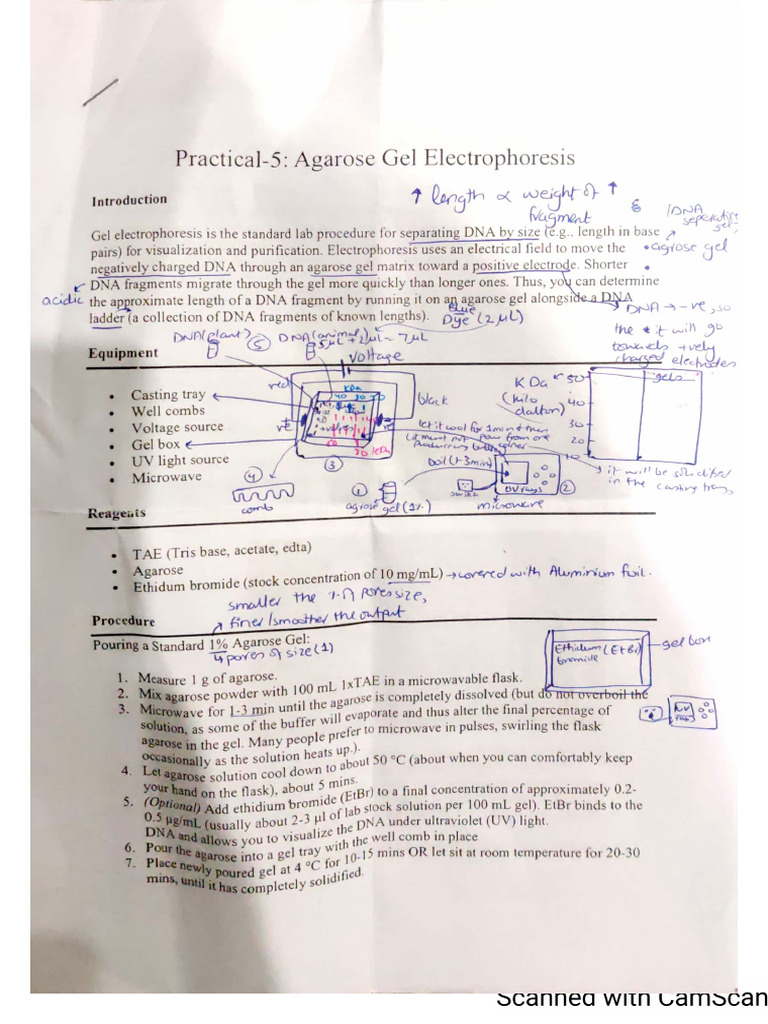 Practical-5: Agarose Gel Electrophoresis
Introduction
↑ length ∝ weight of ↑
fragment
Gel electrophoresis is the standard lab procedure for separating DNA by size (e.g.. length in base
pairs) for visualization and purification. Electrophoresis uses an electrical field to move the
• agrose gel
negatively charged DNA through an agarose gel matrix toward a positive electrode. Shorter
DNA fragments migrate through the gel more quickly than longer ones. Thus, you can determine
acidic
the approximate length of a DNA fragment by running it on an agarose gel alongside a DNA
ladder (a collection of DNA fragments of known lengths).
Blue
Dye (2 μL)
DNA → -ve, so
the it will go
towards +vely
charged electrodes
DNA (plant)
5
DNA (animal)
5 μL + 2 μL ~ 7 μL
voltage
Equipment
red
black
KDa
KDa
(kilo
dalton)
50
40
30
20
10
gels
• Casting tray
• Well combs
• Voltage source
• Gel box
• UV light source
• Microwave
let it cool for 1 min then
boil (1-3 min)
it will be solidified
in the casting tray
4
3
1
2
comb
agrose gel (1%)
UV rays
microwave
Reagents
• TAE (Tris base, acetate, edta)
• Agarose
• Ethidum bromide (stock concentration of 10 mg/mL) → covered with Aluminium foil.
smaller the pores size,
finer/smoother the output
Procedure
Pouring a Standard 1% Agarose Gel:
pores of size (1)
Ethidium (EtBr)
bromide
gel box
1. Measure 1 g of agarose.
2. Mix agarose powder with 100 mL 1xTAE in a microwavable flask.
3. Microwave for 1-3 min until the agarose is completely dissolved (but do not overboil the
solution, as some of the buffer will evaporate and thus alter the final percentage of
agarose in the gel. Many people prefer to microwave in pulses, swirling the flask
occasionally as the solution heats up.).
4. Let agarose solution cool down to about 50 °C (about when you can comfortably keep
your hand on the flask), about 5 mins.
5. (Optional) Add ethidium bromide (EtBr) to a final concentration of approximately 0.2-
0.5 μg/mL (usually about 2-3 μl of lab stock solution per 100 mL gel). EtBr binds to the
DNA and allows you to visualize the DNA under ultraviolet (UV) light.
6. Pour the agarose into a gel tray with the well comb in place
7. Place newly poured gel at 4 °C for 10-15 mins OR let sit at room temperature for 20-30
mins, until it has completely solidified.
Scanned with CamScan